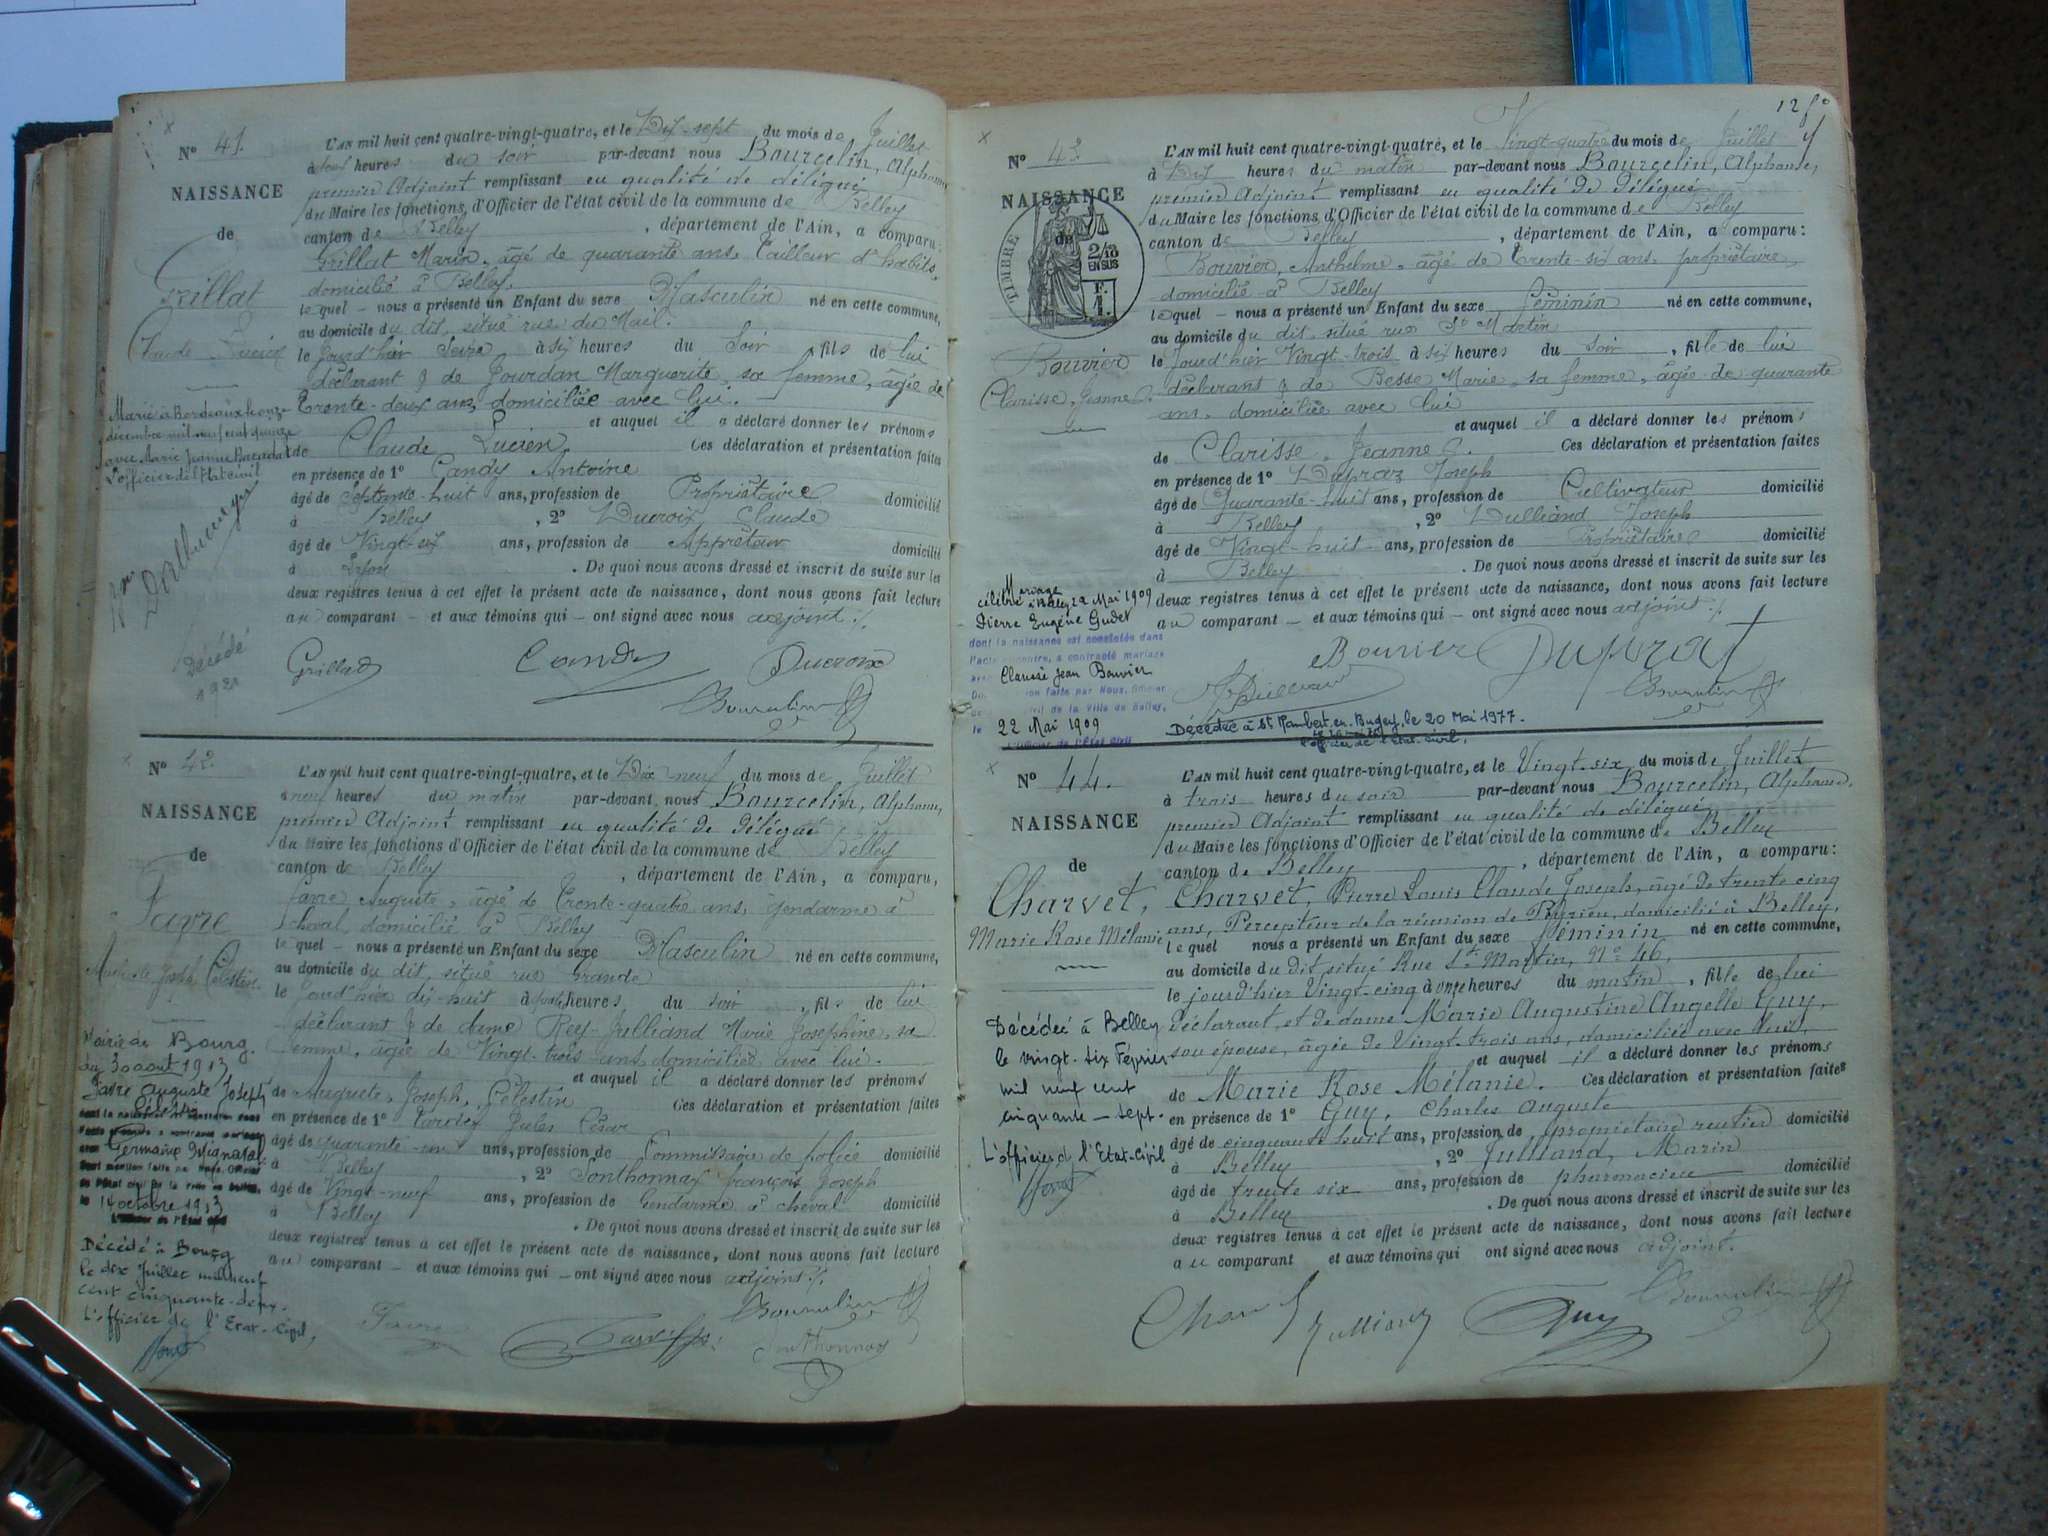 Nº 41.
NAISSANCE
de
Grillat
Claude Lucien
Marié à Bordeaux le onze
décembre mil neuf cent quinze
avec Marie Jeanne
L'officier de l'Etat civil
Décédé
L'AN mil huit cent quatre-vingt-quatre, et le Dix-sept du mois de Juillet
à heures du soir par-devant nous Bourcelin, Alphonse
premier Adjoint remplissant en qualité de délégué
du Maire les fonctions d'Officier de l'état civil de la commune de Belley
canton de Belley, département de l'Ain, a comparu:
Grillat Marin, âgé de quarante ans, Tailleur d'habits,
domicilié à Belley,
lequel – nous a présenté un Enfant du sexe Masculin né en cette commune,
au domicile du dit, situé rue du Mail.
le jourd'hier Seize à six heures du soir, fils de lui
déclarant & de Jourdan Marguerite, sa femme, âgée de
Trente-deux ans, domiciliée avec lui.
et auquel il a déclaré donner les prénoms
de Claude Lucien Ces déclaration et présentation faites
en présence de 1º Candy Antoine
âgé de Septante-huit ans, profession de Propriétaire domicilié
à Belley, 2º Ducroix Claude
âgé de Vingt-six ans, profession de Apprêteur domicilié
à Lyon. De quoi nous avons dressé et inscrit de suite sur les
deux registres tenus à cet effet le présent acte de naissance, dont nous avons fait lecture
au comparant – et aux témoins qui – ont signé avec nous adjoint ./.
Grillat Candy Ducroix
Bourcelin
Nº 42.
NAISSANCE
de
Favre
Auguste Joseph Célestin
Mairie de Bourg
du 30 août 1913
Favre Auguste Joseph
Germaine
le 14 octobre 1913
Décédé à Bourg
le dix Juillet mil neuf
cent cinquante-deux.
L'officier de l'Etat-Civil,
L'AN mil huit cent quatre-vingt-quatre, et le Dix neuf du mois de Juillet
à neuf heures du matin par-devant nous Bourcelin, Alphonse,
premier Adjoint remplissant en qualité de délégué
du Maire les fonctions d'Officier de l'état civil de la commune de Belley
canton de Belley, département de l'Ain, a comparu,
Favre Auguste, âgé de Trente-quatre ans, gendarme à
cheval, domicilié à Belley
lequel – nous a présenté un Enfant du sexe Masculin né en cette commune,
au domicile du dit, situé rue Grande
le jourd'hier dix-huit à heures du soir, fils de lui
déclarant & de dame Rey-Julliand Marie Josephine, sa
femme, âgée de Vingt-trois ans, domiciliée avec lui.
et auquel il a déclaré donner les prénoms
de Auguste, Joseph, Célestin Ces déclaration et présentation faites
en présence de 1º Jules César
âgé de quarante-un ans, profession de Commissaire de police domicilié
à Belley, 2º Sonthonnax François Joseph
âgé de Vingt-neuf ans, profession de Gendarme à cheval domicilié
à Belley. De quoi nous avons dressé et inscrit de suite sur les
deux registres tenus à cet effet le présent acte de naissance, dont nous avons fait lecture
au comparant – et aux témoins qui – ont signé avec nous adjoint ./.
Bourcelin
Favre Sonthonnax
12 fº
Nº 43
NAISSANCE
de
TIMBRE
2/10
EN SUS
F.
1.
Bouvier
Clarisse, Jeanne C.
Mariage
célébré à Belley 22 Mai 1909
Pierre Eugène Gudet
dont la naissance est constatée dans
l'acte, a contracté mariage
avec Clarisse Jean Bouvier
de la Ville de Belley,
le 22 Mai 1909
L'AN mil huit cent quatre-vingt-quatre, et le Vingt-quatre du mois de Juillet
à Dix heures du matin par-devant nous Bourcelin, Alphonse,
premier Adjoint remplissant en qualité de délégué
du Maire les fonctions d'Officier de l'état civil de la commune de Belley
canton de Belley, département de l'Ain, a comparu:
Bouvier, Anthelme, âgé de Trente-six ans, propriétaire,
domicilié à Belley
lequel – nous a présenté un Enfant du sexe féminin né en cette commune,
au domicile du dit, situé rue St Martin
le jourd'hier Vingt-trois à six heures du soir, fille de lui
déclarant & de Besse Marie, sa femme, âgée de quarante
ans, domiciliée avec lui
et auquel il a déclaré donner les prénoms
de Clarisse, Jeanne C. Ces déclaration et présentation faites
en présence de 1º Dupraz Joseph
âgé de Quarante-huit ans, profession de Cultivateur domicilié
à Belley, 2º Dulliand Joseph
âgé de Vingt-huit ans, profession de Propriétaire domicilié
à Belley. De quoi nous avons dressé et inscrit de suite sur les
deux registres tenus à cet effet le présent acte de naissance, dont nous avons fait lecture
au comparant – et aux témoins qui – ont signé avec nous adjoint ./.
Bouvier Dupraz
Bourcelin
Décédée à St Rambert-en-Bugey, le 20 Mai 1977.
l'officier de l'Etat-civil,
Nº 44.
NAISSANCE
de
Charvet,
Marie Rose Mélanie
Décédée à Belley
le vingt-six Février
mil neuf cent
cinquante-sept.
L'officier d l'Etat-Civil
L'AN mil huit cent quatre-vingt-quatre, et le Vingt-six du mois de Juillet
à trois heures du soir par-devant nous Bourcelin, Alphonse,
premier Adjoint remplissant en qualité de délégué
du Maire les fonctions d'Officier de l'état civil de la commune de Belley
canton de Belley, département de l'Ain, a comparu:
Charvet, Pierre Louis Claude Joseph, âgé de trente cinq
ans, Percepteur de la réunion de Peyrieu, domicilié à Belley,
lequel nous a présenté un Enfant du sexe féminin né en cette commune,
au domicile du dit situé Rue St Martin, Nº 46,
le jourd'hier Vingt-cinq à onze heures du matin, fille de lui
déclarant, et de dame Marie Augustine Angelle Guy,
son épouse, âgée de Vingt-trois ans, domiciliée avec lui,
et auquel il a déclaré donner les prénoms
de Marie Rose Mélanie. Ces déclaration et présentation faites
en présence de 1º Guy, Charles Auguste
âgé de cinquante huit ans, profession de propriétaire rentier domicilié
à Belley, 2º Julliand, Marin
âgé de trente six ans, profession de pharmacien domicilié
à Belley. De quoi nous avons dressé et inscrit de suite sur les
deux registres tenus à cet effet le présent acte de naissance, dont nous avons fait lecture
au comparant et aux témoins qui ont signé avec nous adjoint.
Charvet Julliand Guy Bourcelin